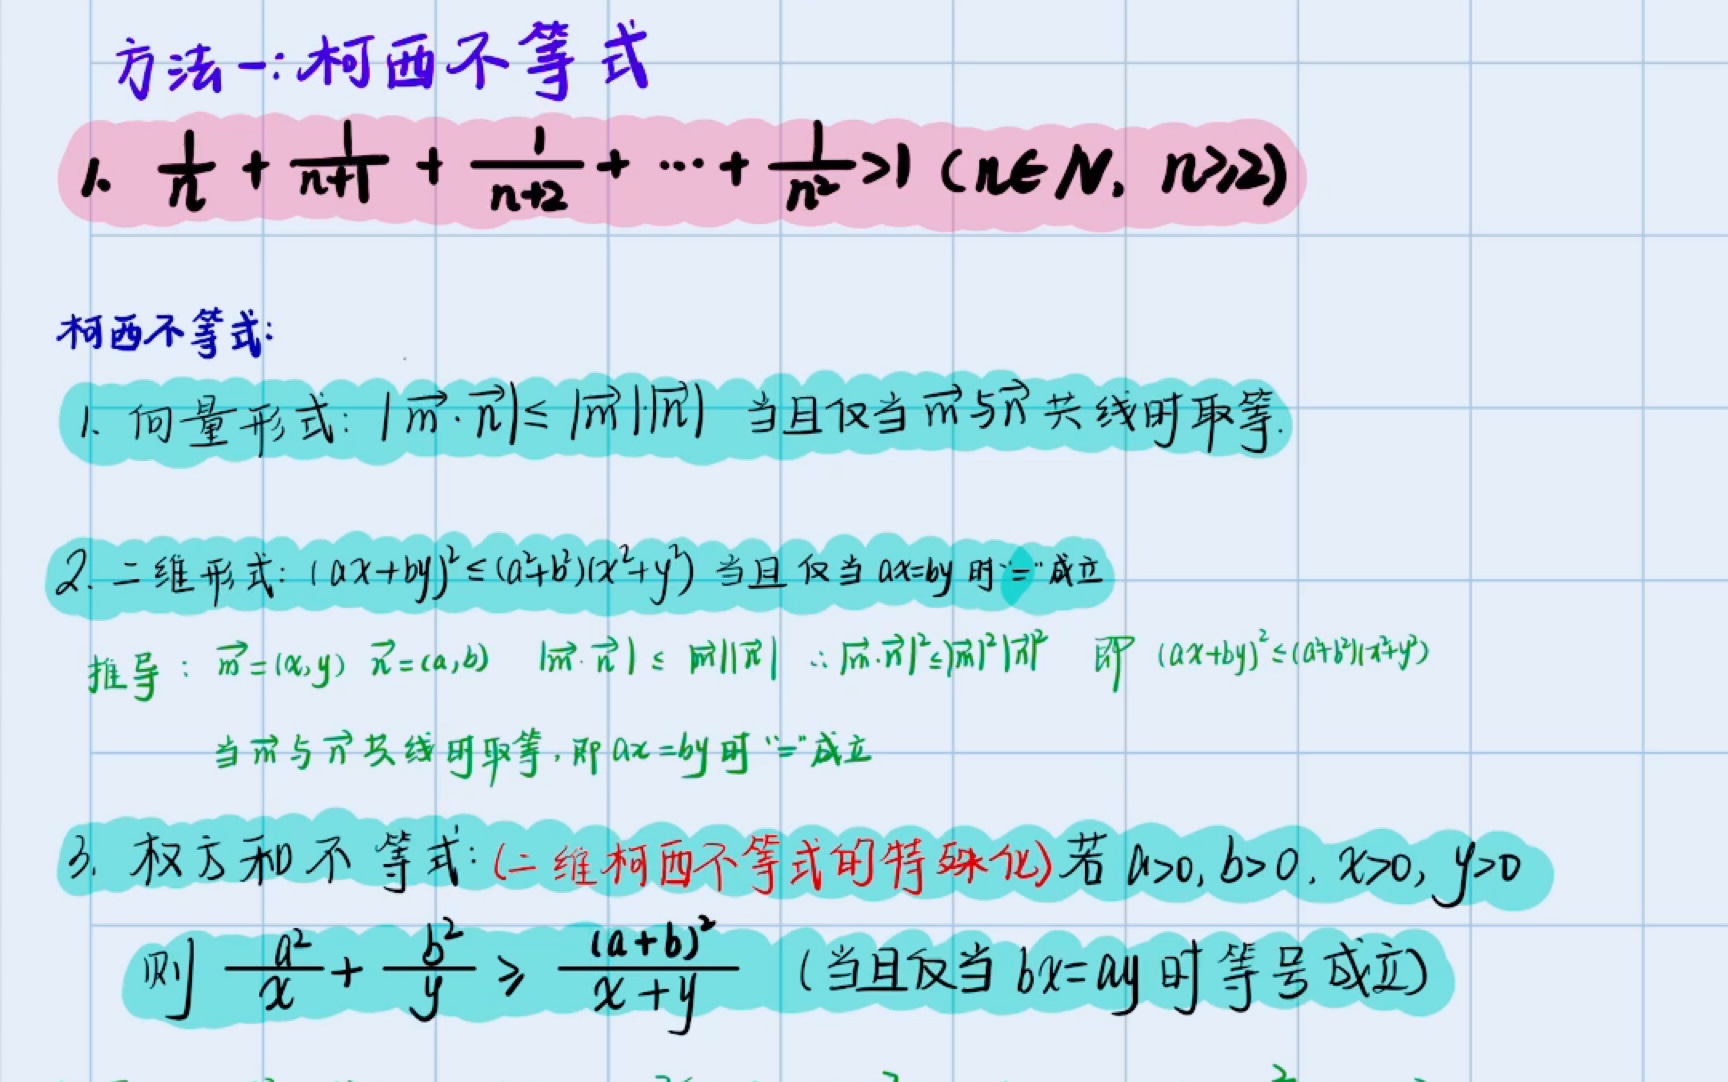 方法一:柯西不等式
1. 1/n + 1/(n+1) + 1/(n+2) + ⋯ + 1/n² >1 (n∈N, n≥2)
柯西不等式:
1. 向量形式: |m⃗·n⃗|≤|m⃗|·|n⃗| 当且仅当m⃗与n⃗共线时取等.
2. 二维形式: (ax+by)²≤(a²+b²)(x²+y²) 当且仅当ax=by时"="成立
推导: m⃗=(x,y) n⃗=(a,b) |m⃗·n⃗|≤|m⃗||n⃗| ∴|m⃗·n⃗|²≤|m⃗|²|n⃗|² 即 (ax+by)²≤(a²+b²)(x²+y²)
当m⃗与n⃗共线时取等,即ax=by时"="成立
3. 权方和不等式:(二维柯西不等式的特殊化)若a>0, b>0, x>0, y>0
则 a²/x + b²/y ≥ (a+b)²/(x+y) (当且仅当bx=ay时等号成立)